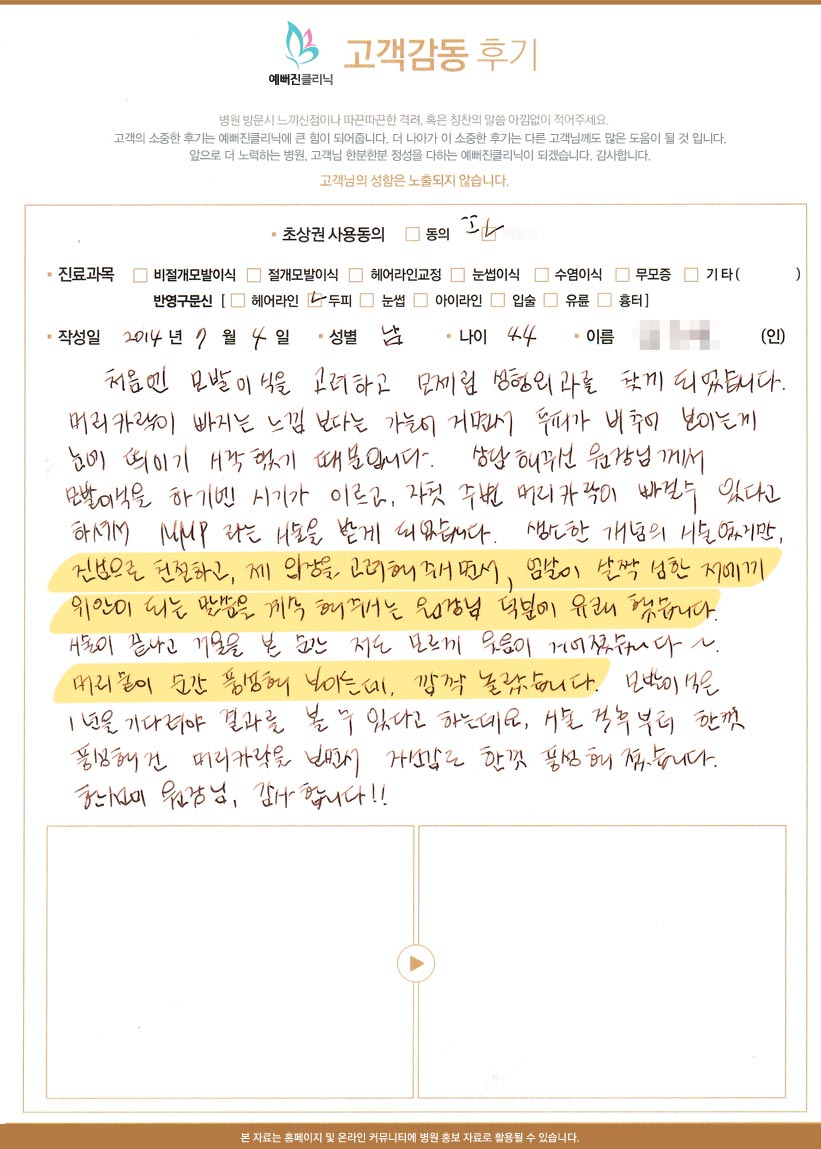 예뻐진클리닉
고객감동 후기
병원 방문시 느끼신점이나 따끈따끈한 격려, 혹은 칭찬의 말씀 아낌없이 적어주세요.
고객의 소중한 후기는 예뻐진클리닉에 큰 힘이 되어줍니다. 더 나아가 이 소중한 후기는 다른 고객님께도 많은 도움이 될 것 입니다.
앞으로 더 노력하는 병원, 고객님 한분한분 정성을 다하는 예뻐진클리닉이 되겠습니다. 감사합니다.
고객님의 성함은 노출되지 않습니다.
초상권 사용동의 동의
진료과목 비절개모발이식 절개모발이식 헤어라인교정 눈썹이식 수염이식 무모증 기타( )
반영구문신 [ 헤어라인 두피 눈썹 아이라인 입술 유륜 흉터 ]
작성일 2014 년 7 월 4 일 성별 남 나이 44 이름 (인)
처음엔 모발이식을 고려하고 모제림 성형외과를 찾게 되었습니다.
머리카락이 빠지는 느낌 보다는 가늘어 지면서 두피가 비추어 보이는게
눈에 띄이기 시작 했기 때문입니다. 상담해주신 원장님께서
모발이식을 하기엔 시기가 이르고, 자칫 주변 머리카락이 빠질수 있다고
하셔서 MMP 라는 시술을 받게 되었습니다. 생소한 개념의 시술였지만,
진심으로 친절하고, 제 입장을 고려해 주시면서, 엄살이 살짝 심한 저에게
위안이 되는 말씀을 계속 해주시는 원장님 덕분에 유쾌 했습니다.
시술이 끝나고 거울을 본 순간 저도 모르게 웃음이 지어졌습니다 ~.
머리숱이 순간 풍성해 보이는데, 깜짝 놀랐습니다. 모발이식은
1년을 기다려야 결과를 볼 수 있다고 하는데요, 시술 직후부터 한껏
풍성해진 머리카락을 보면서 자신감도 한껏 풍성해 졌습니다.
원장님, 감사합니다!!
본 자료는 홈페이지 및 온라인 커뮤니티에 병원 홍보 자료로 활용될 수 있습니다.